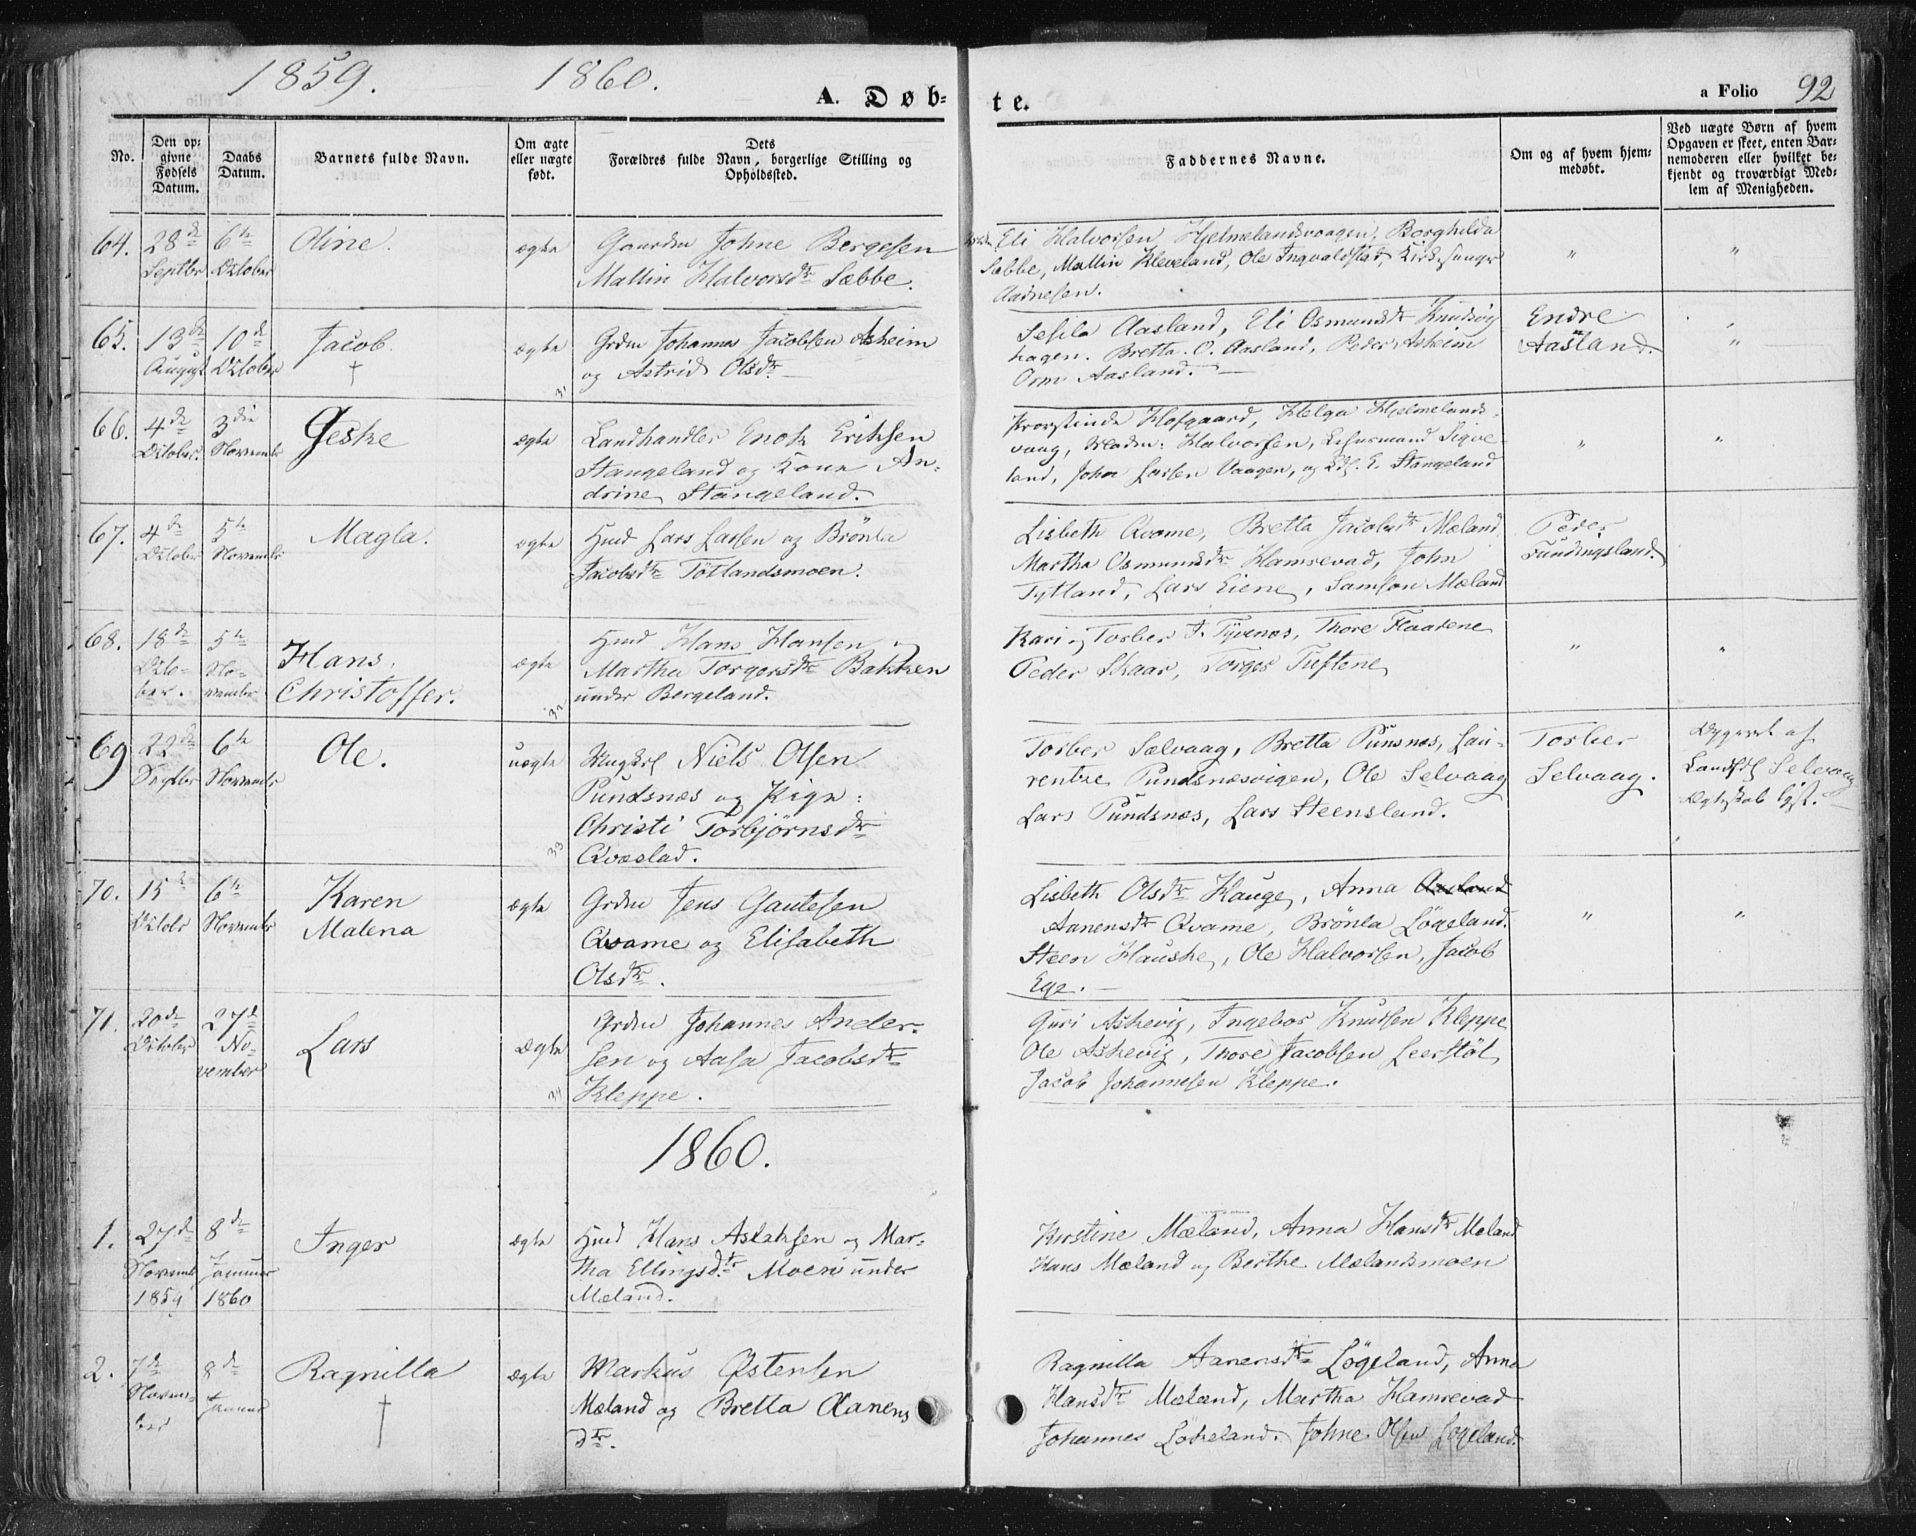 1859. 1860.
A. Døb-
te.
a Folio 92
No.
Den op-
givne
Fødsels
Datum.
Daabs
Datum.
Barnets fulde Navn.
Om ægte
eller uægte
født.
Dets
Forældres fulde Navn, borgerlige Stilling og
Opholdssted.
Faddernes Navne.
Om og af hvem hjem-
medøbt.
Ved uægte Børn af hvem
Opgaven er skeet, enten Bar-
nemoderen eller hvilket be-
kjendt og troværdigt Med-
lem af Menigheden.
64. 28de Septbr
6te October
Oline.
ægte
Gaardm Johne Bergesen
Mallin Halvorsdtr Sæbbe.
Eli Halvorsen Hjelmelandsvaagen, Borghilda
Sæbbe, Mallin Kleveland, Ole Ingvaldstad, Kirkesanger
Aadnesen.
" "
65. 13de August
10de October
Jacob.
†
ægte
31
Grdm Johannes Jacobsen Asheim
og Astrid Olsdtr.
Sesila Aasland, Eli Osmundsdtr Knudsvig
hagen. Bretta O. Aasland, Peder Asheim
Orm Aasland.
Endre
Aasland.
"
66. 4de October.
3die Novembr
Geske
ægte
Landhandler Enok Eriksen
Stangeland og Kone An-
drine Stangeland.
Provstinde Hofgaard, Helga Hjelmelands-
vaag, Madm: Halvorsen, Lehnsmand Sigve-
land, John Larsen Vaagen, og E. Stangeland
" "
67. 4de October
5te Novembr
Magla.
ægte
Hmd Lars Larsen og Brönla
Jacobsdtr Tötlandsmoen.
Lisbeth Qvame, Bretta Jacobsdtr Mæland
Martha Osmundsdtr Hamrevad, John
Tytland, Lars Eiene, Samson Mæland
Peder
Fundingsland.
68. 18de Octo-
ber.
5te No-
vembr
Hans
Christoffer.
ægte
32
Hmd Hans Hansen og
Martha Torgersdtr Bakken
under Bergeland.
Kari og Torber T. Tyvenæs, Thore Flaatene
Peder Skaar, Torger Tuftene
" "
69 22de Septbr
6te Novembr
Ole.
uægte
33
Ungkrl Niels Olsen
Pundsnæs og Pige:
Christi Torbjörnsdtr
Qvæstad.
Torber Sælvaag, Bretta Punsnæs, Lau-
rentze Pundsnæsvigen, Ole Selvaag
Lars Pundsnæs, Lars Steensland.
Torber
Selvaag.
Opgivet af
Selvaag
Ægteskab lyst.
70. 15de Octobr
6te Novembr
Karen
Malena
ægte
Grdm Jens Gautesen
Qvame og Elisabeth
Olsdtr.
Lisbeth Olsdtr Hauge, Anna
Aanensdtr Qvame, Brönla Lögeland.
Steen Hauske, Ole Halvorsen, Jacob
Ege.
" "
71. 20de October
27de No-
vember
Lars
Ægte
34
Grdm Johannes Ander-
sen og Aasa Jacobsdtr
Kleppe.
Guri Askevig, Ingebor Knudsen Kleppe
Ole Askevig, Thore Jacobsen Leerstöl,
Jacob Johannesen Kleppe.
1860.
1. 27de Novemb 1859
8de Januar 1860
Inger
ægte
Hmd Hans Aslaksen og Mar-
tha Ellingsdtr Moen under
Mæland.
Kirstine Mæland, Anna Hansdtr Mæland
Hans Mæland og Berthe Mælandsmoen
2. 7de Novem-
ber
8de Januar
Ragnilla
†
ægte
Markus Østensen
Mæland og Bretta Aanens
dtr.
Ragnilla Aanensdtr Lögeland, Anna
Hansdtr Mæland, Martha Hamrevad
Johannes Lökeland. Johne Olsen Logeland.